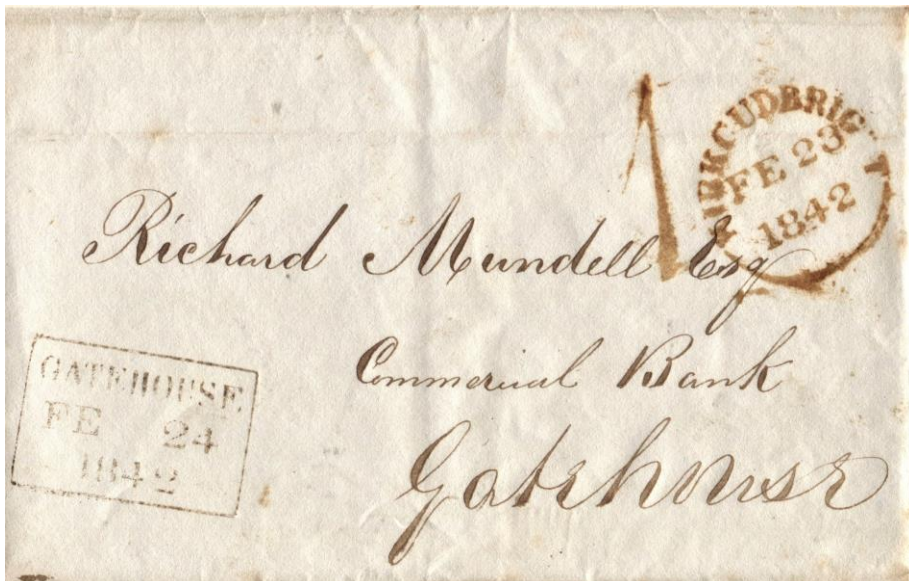 1
KIRKCUDBRIGHT
FE 23
1842
Richard Mundell Esq
Commercial Bank
Gatehouse
GATEHOUSE
FE 24
1842